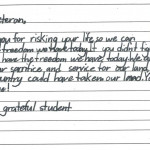 eteran,
ou for risking your life so we can
freedom we have today. If you didn't fig
have the freedom we have today. We a
ur sacrifice and service for our land.
ountry could have taken our land. Yo
e!
grateful student